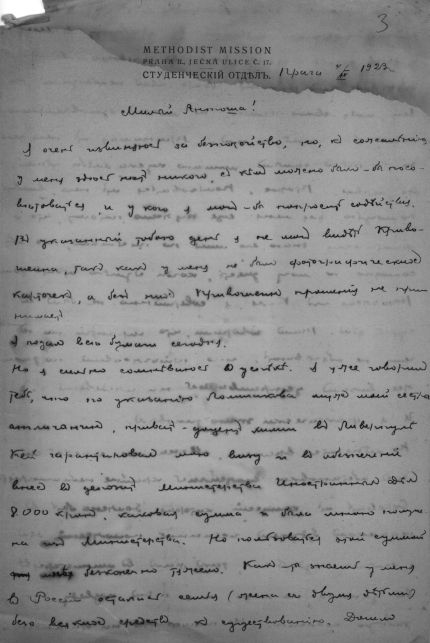 3
METHODIST MISSION
PRAHA II., JEČNÁ ULICE Č. 17.
СТУДЕНЧЕСКІЙ ОТДѢЛЪ. Прага 1923
Милый Антоша!
Я очень извиняюсь за безпокойство, но, к сожалѣнію
у меня здесь нет никого, с кем можно было-бы посо-
вѣтоваться и у кого я мог-бы попросить содѣйствія.
В указанный тобою день я не мог видѣть Криво-
шеина, так как у меня не было фотографических
карточек, а без них Кривошеин прошенія не при-
нимает
Я подал всѣ бумаги сегодня.
Но я сильно сомнѣваюсь в успѣхѣ. Я уже говорил
тебѣ, что по указанію муж моей сестры
англичанин, приват-доцент в Ливерпуле
гарантировал мою визу и в обезпеченіе
внес в Министерства Иностранных Дѣл
8.000 крон, каковая сумма и была мною получе-
на из Министерства. Но пользоваться этой суммой
безконечно тяжело. Как ты знаешь у меня
в Россіи осталась семья (жена с двумя дѣтьми)
без всяких средств к существованію. Денег